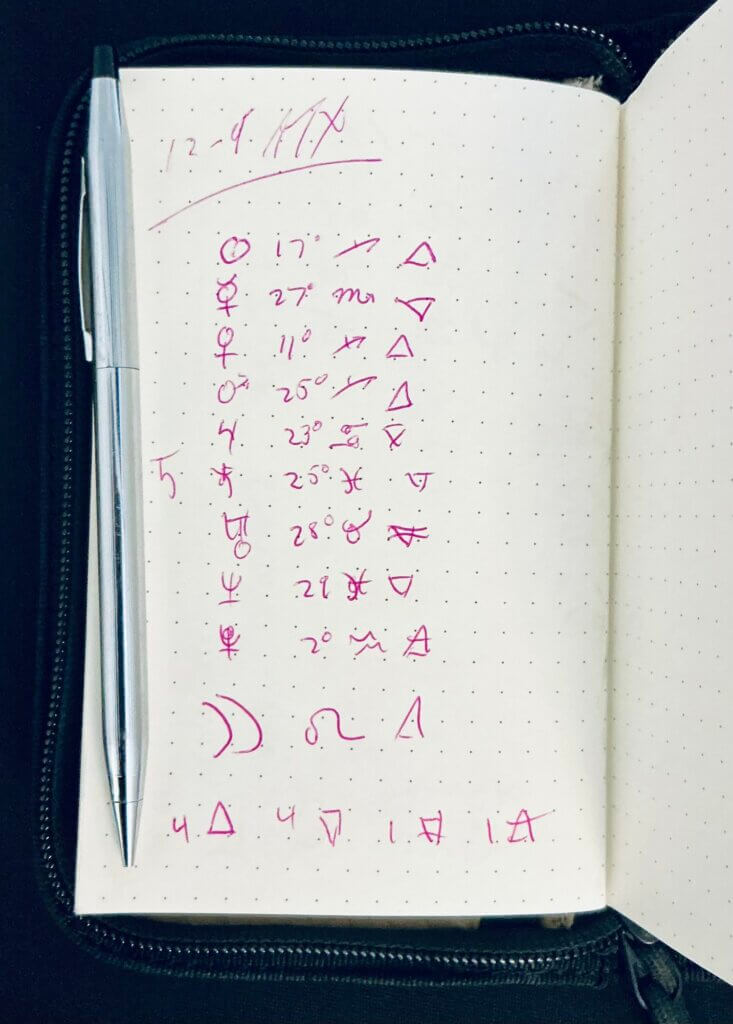 12-9 ATX
☉ 17° ♐ 🜂
☿ 27° ♏ 🜄
♀ 11° ♐ 🜂
♂ 25° ♐ 🜂
♃ 23° ♋ 🜄
5 ♄ 25° ♓ 🜄
♅ 28° ♉ 🜃
♆ 29 ♓ 🜄
♇ 2° ♒ 🜁
☽ ♌ 🜂
4 🜂 4 🜄 1 🜃 1 🜁